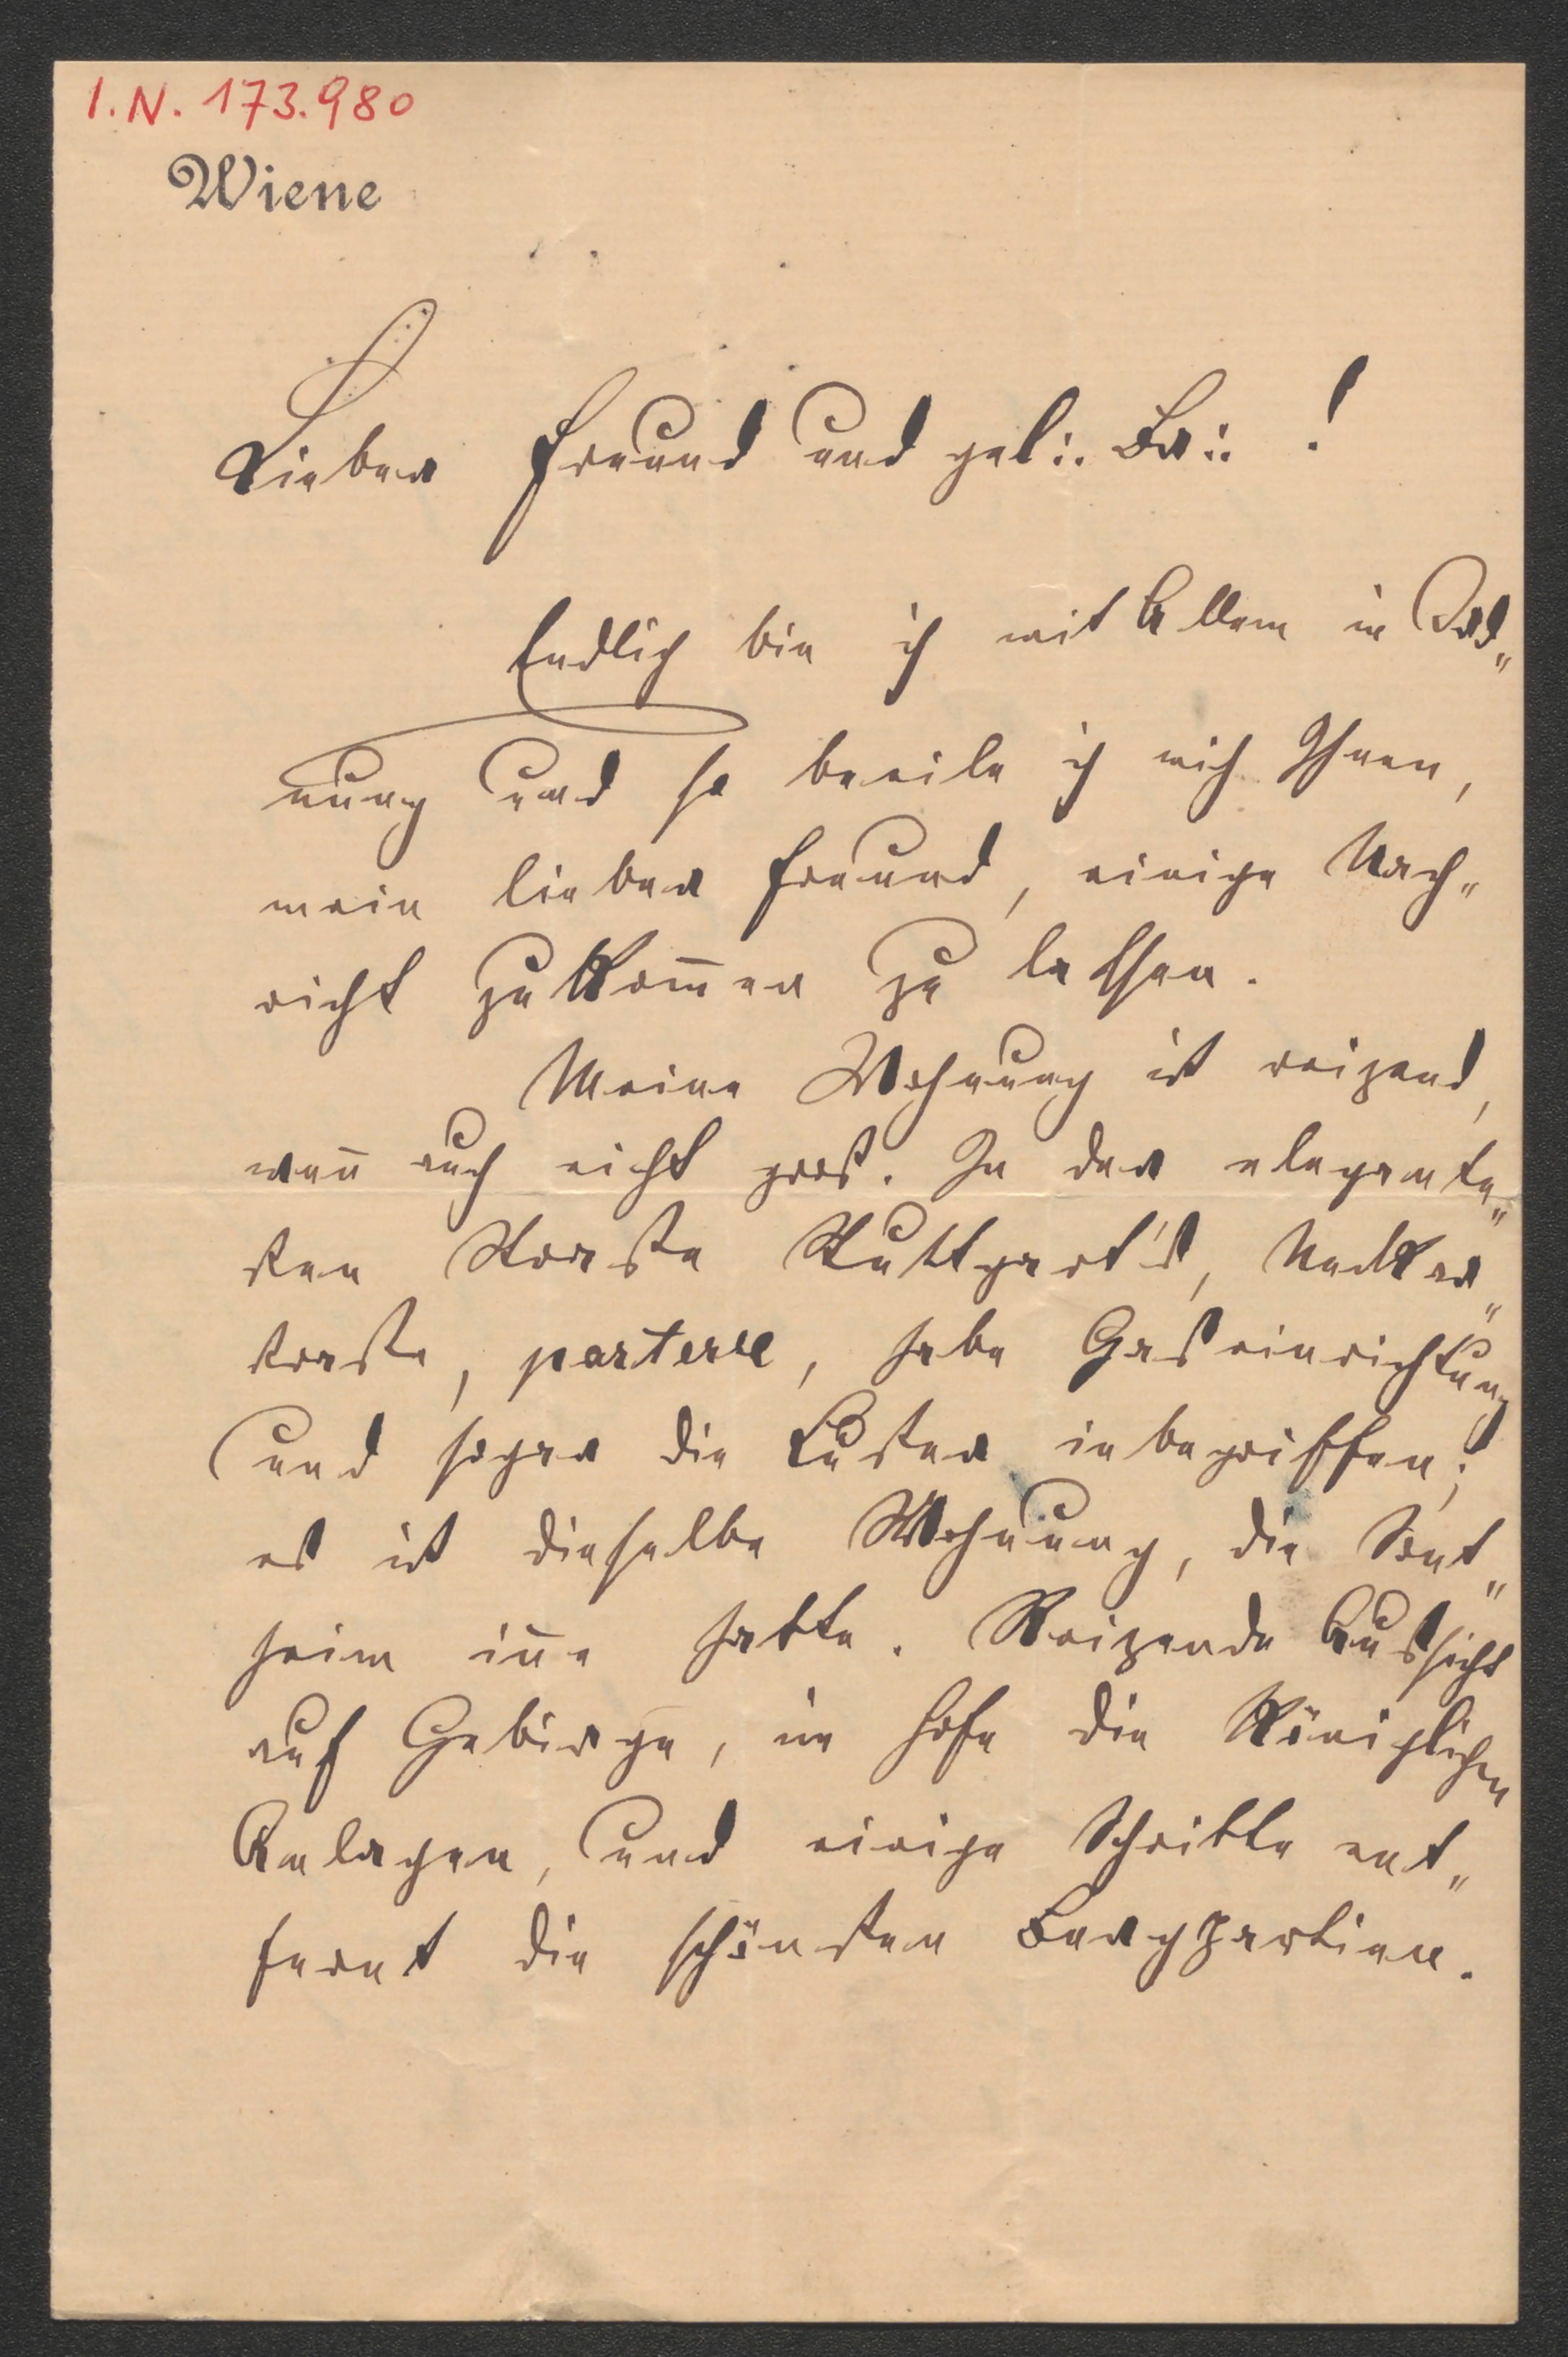 I.N. 173.980
Wiene
Lieber Freund und gel∴ Br∴ !
Endlich bin ich mit Allem in Ord„
nung und so beeile ich mich Ihnen,
mein lieber Freund, einige Nach„
richt zukom̅en zu lassen.
Meine Wohnung ist reizend,
wen̅ auch nicht groß. In der elegante„
sten Straße Stuttgart's, Neckar„
straße, parterre, habe Gaseinrichtung
und sogar die Luster inbegriffen;
es ist dieselbe Wohnung, die Sont„
heim in̅e hatte. Reizende Aussicht
auf Gebirge, im Hofe die Königlichen
Anlagen, und einige Schritte ent„
fernt die schönsten Bergpartien.